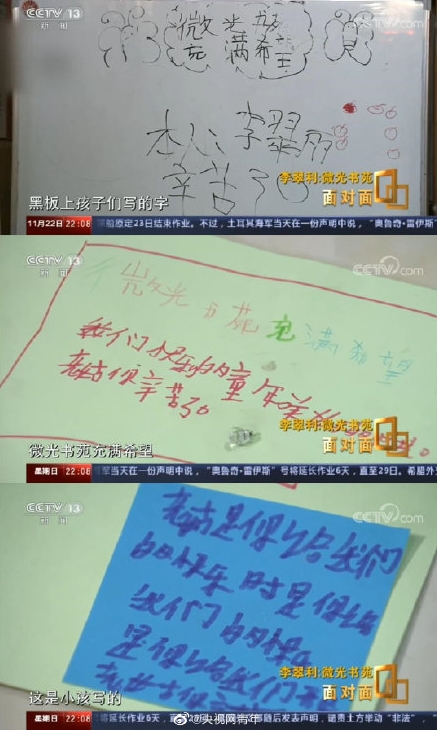 CCTV 13
新闻
CCTV.com
微光书苑
充满希望
本心:李翠丽
辛苦了
黑板上孩子们写的字
李翠利:微光书苑
面对面
11月22日 22:08
原定23日结束作业。不过,土耳其海军当天在一份声明中说,“奥鲁奇·雷伊斯”
CCTV 13
新闻
CCTV.com
微光书苑充满希望
我们快乐的童年
姑姑你辛苦了
微光书苑充满希望
李翠利:微光书苑
面对面
星期日 22:08
军当天在一份声明中说,“奥鲁奇·雷伊斯”号将延长作业6天,直至29日。希腊外
CCTV 13
新闻
CCTV.com
姑姑是你给我们
的快乐 时是你给
我们的
是你给我们
这是小孩写的
李翠利:微光书苑
面对面
星期日 22:08
将延长作业6天,直
后发表声明,谴责土方举动“非法”,
@央视网青年